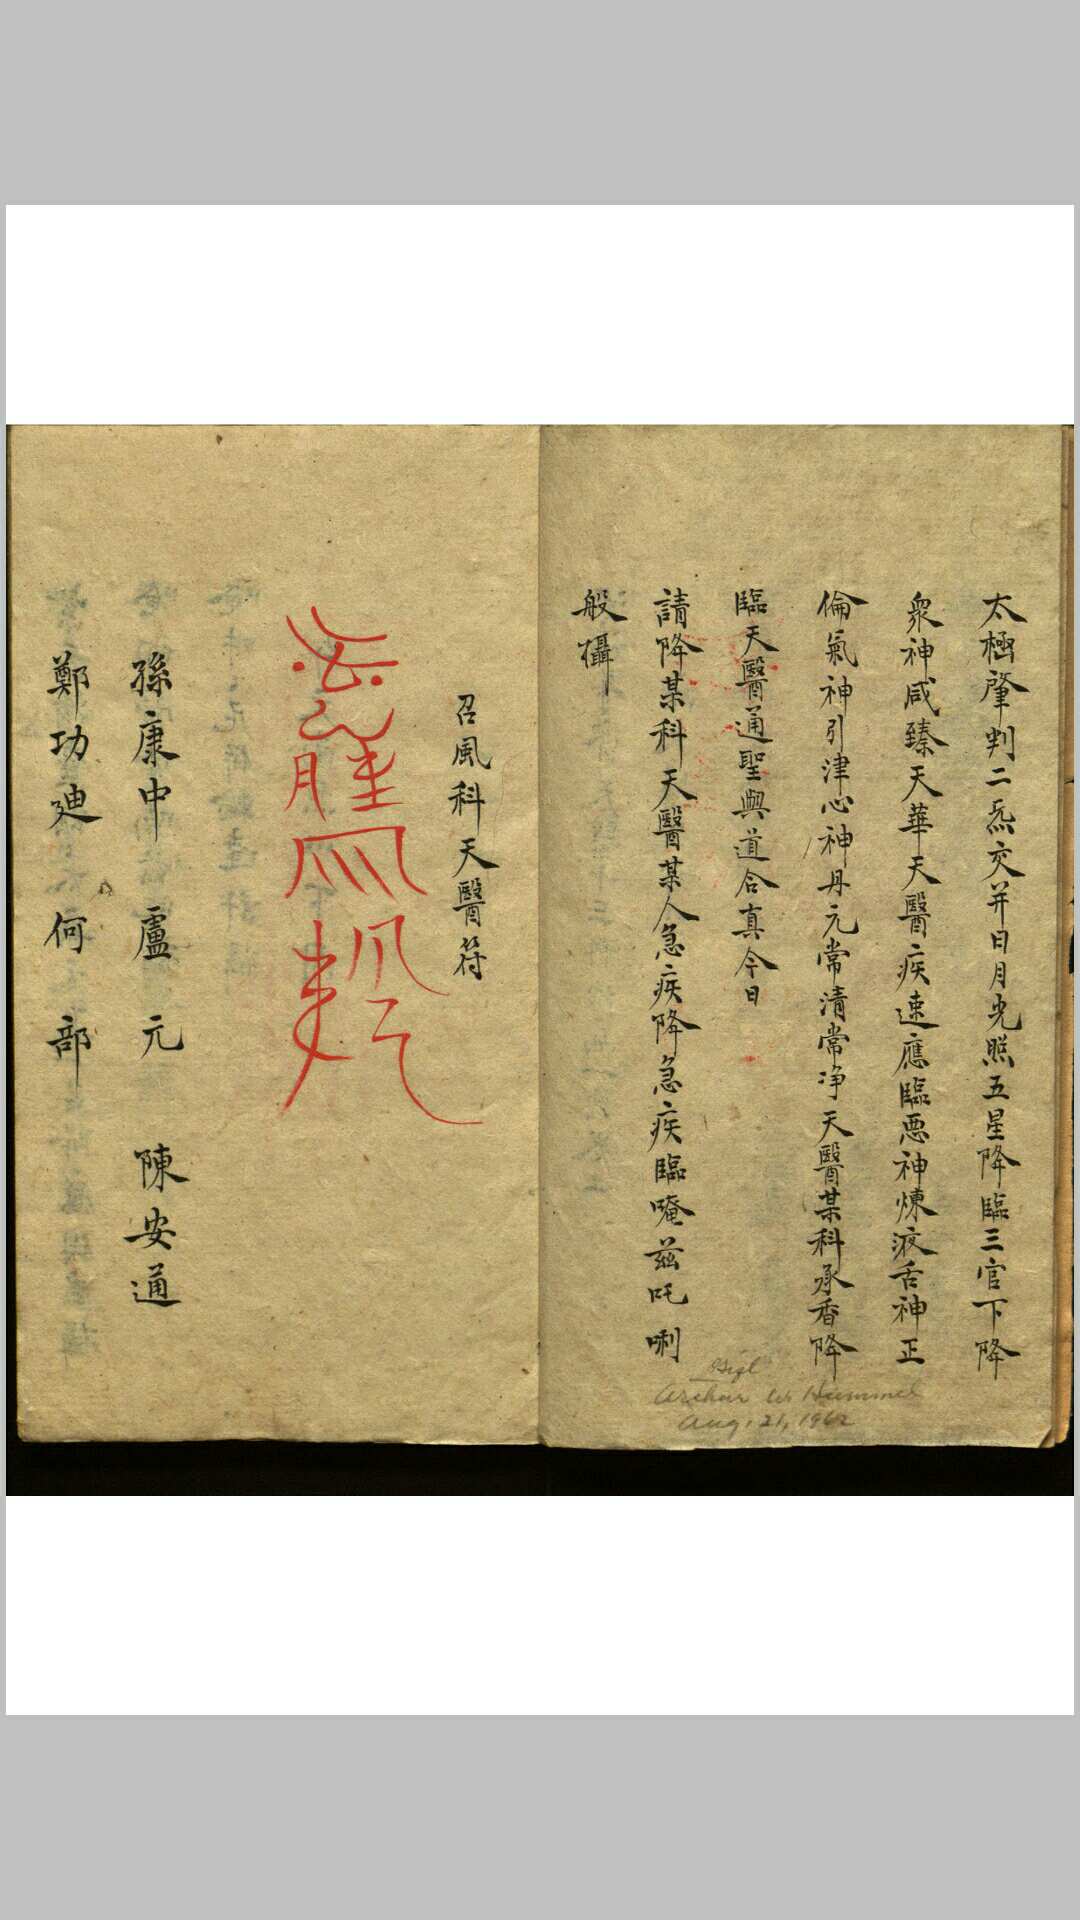 太極肇判二炁交并日月光照五星降臨三官下降
衆神咸臻天華天醫疾速應臨悪神煉液舌神正
倫氣神引津心神丹元常清常净天醫某科承香降
臨天醫通聖與道合真今日
請降某科天醫某人急疾降急疾臨唵茲吒唎
般攝
Gift
Arthur W. Hummel
Aug. 21, 1962
召風科天醫符
孫康中 盧元 陳安通
鄭功廸 何部